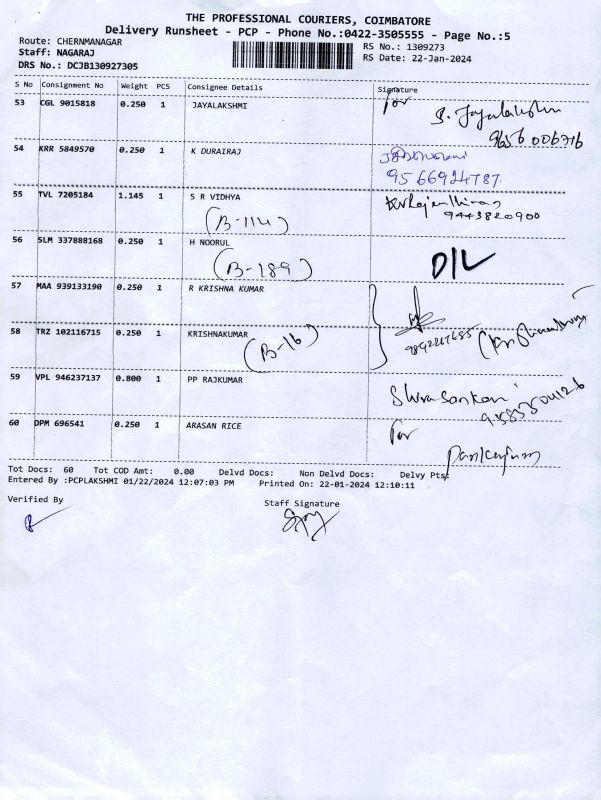 THE PROFESSIONAL COURIERS, COIMBATORE
Delivery Runsheet - PCP - Phone No.:0422-3505555 - Page No.:5
Route: CHERNMANAGAR
Staff: NAGARAJ
DRS No.: DCJB130927305
RS No.: 1309273
RS Date: 22-Jan-2024
S No Consignment No Weight PCS Consignee Details Signature
53 CGL 9015818 0.250 1 JAYALAKSHMI for S. Jayalakshmi
9656006716
54 KRR 5849570 0.250 1 K DURAIRAJ
9566924787
55 TVL 7205184 1.145 1 S R VIDHYA
(B-114) 9443820900
56 SLM 337888168 0.250 1 H NOORUL D/L
(B-189)
57 MAA 939133190 0.250 1 R KRISHNA KUMAR
58 TRZ 102116715 0.250 1 KRISHNAKUMAR
(B-16)
59 VPL 946237137 0.800 1 PP RAJKUMAR
60 DPM 696541 0.250 1 ARASAN RICE for
Tot Docs: 60 Tot COD Amt: 0.00 Delvd Docs: Non Delvd Docs: Delvy Pts:
Entered By :PCPLAKSHMI 01/22/2024 12:07:03 PM Printed On: 22-01-2024 12:10:11
Verified By Staff Signature